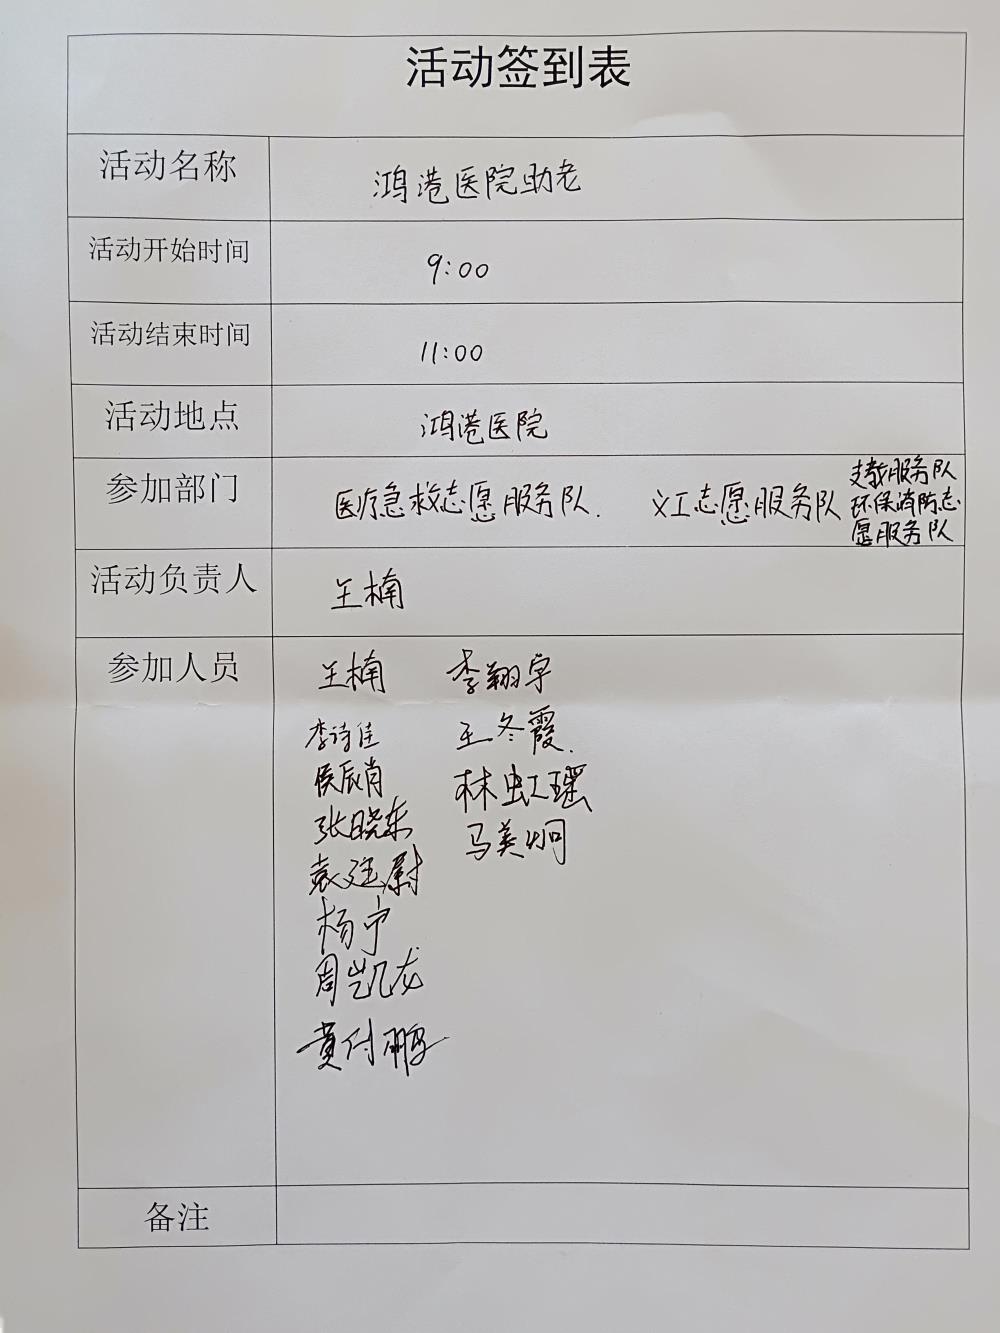 活动签到表
活动名称 鸿港医院助老
活动开始时间 9:00
活动结束时间 11:00
活动地点 鸿港医院
参加部门 医疗急救志愿服务队. 义工志愿服务队 支教服务队
环保消防志
愿服务队
活动负责人 王楠
参加人员 王楠 李翔宇
李诗佳 王冬霞.
侯辰肖 林虹瑶
张晓东 马美炯
袁廷尉
杨宁
周凯龙
黄付鹏
备注